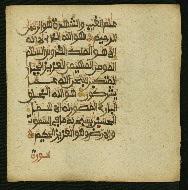 علم الغيب والشهدة هو الرحمن
الرحيم هو الله الذي لا إله
إلا هو الملك القدوس السلم
المومن المهيمن العزيز الجبار
المتكبر سبحن الله عما
يشركون هو الله الخلق
البارئ المصور له الأسماء
الحسنى يسبح له ما في السموت
والأرض وهو العزيز الحكيم
سورة